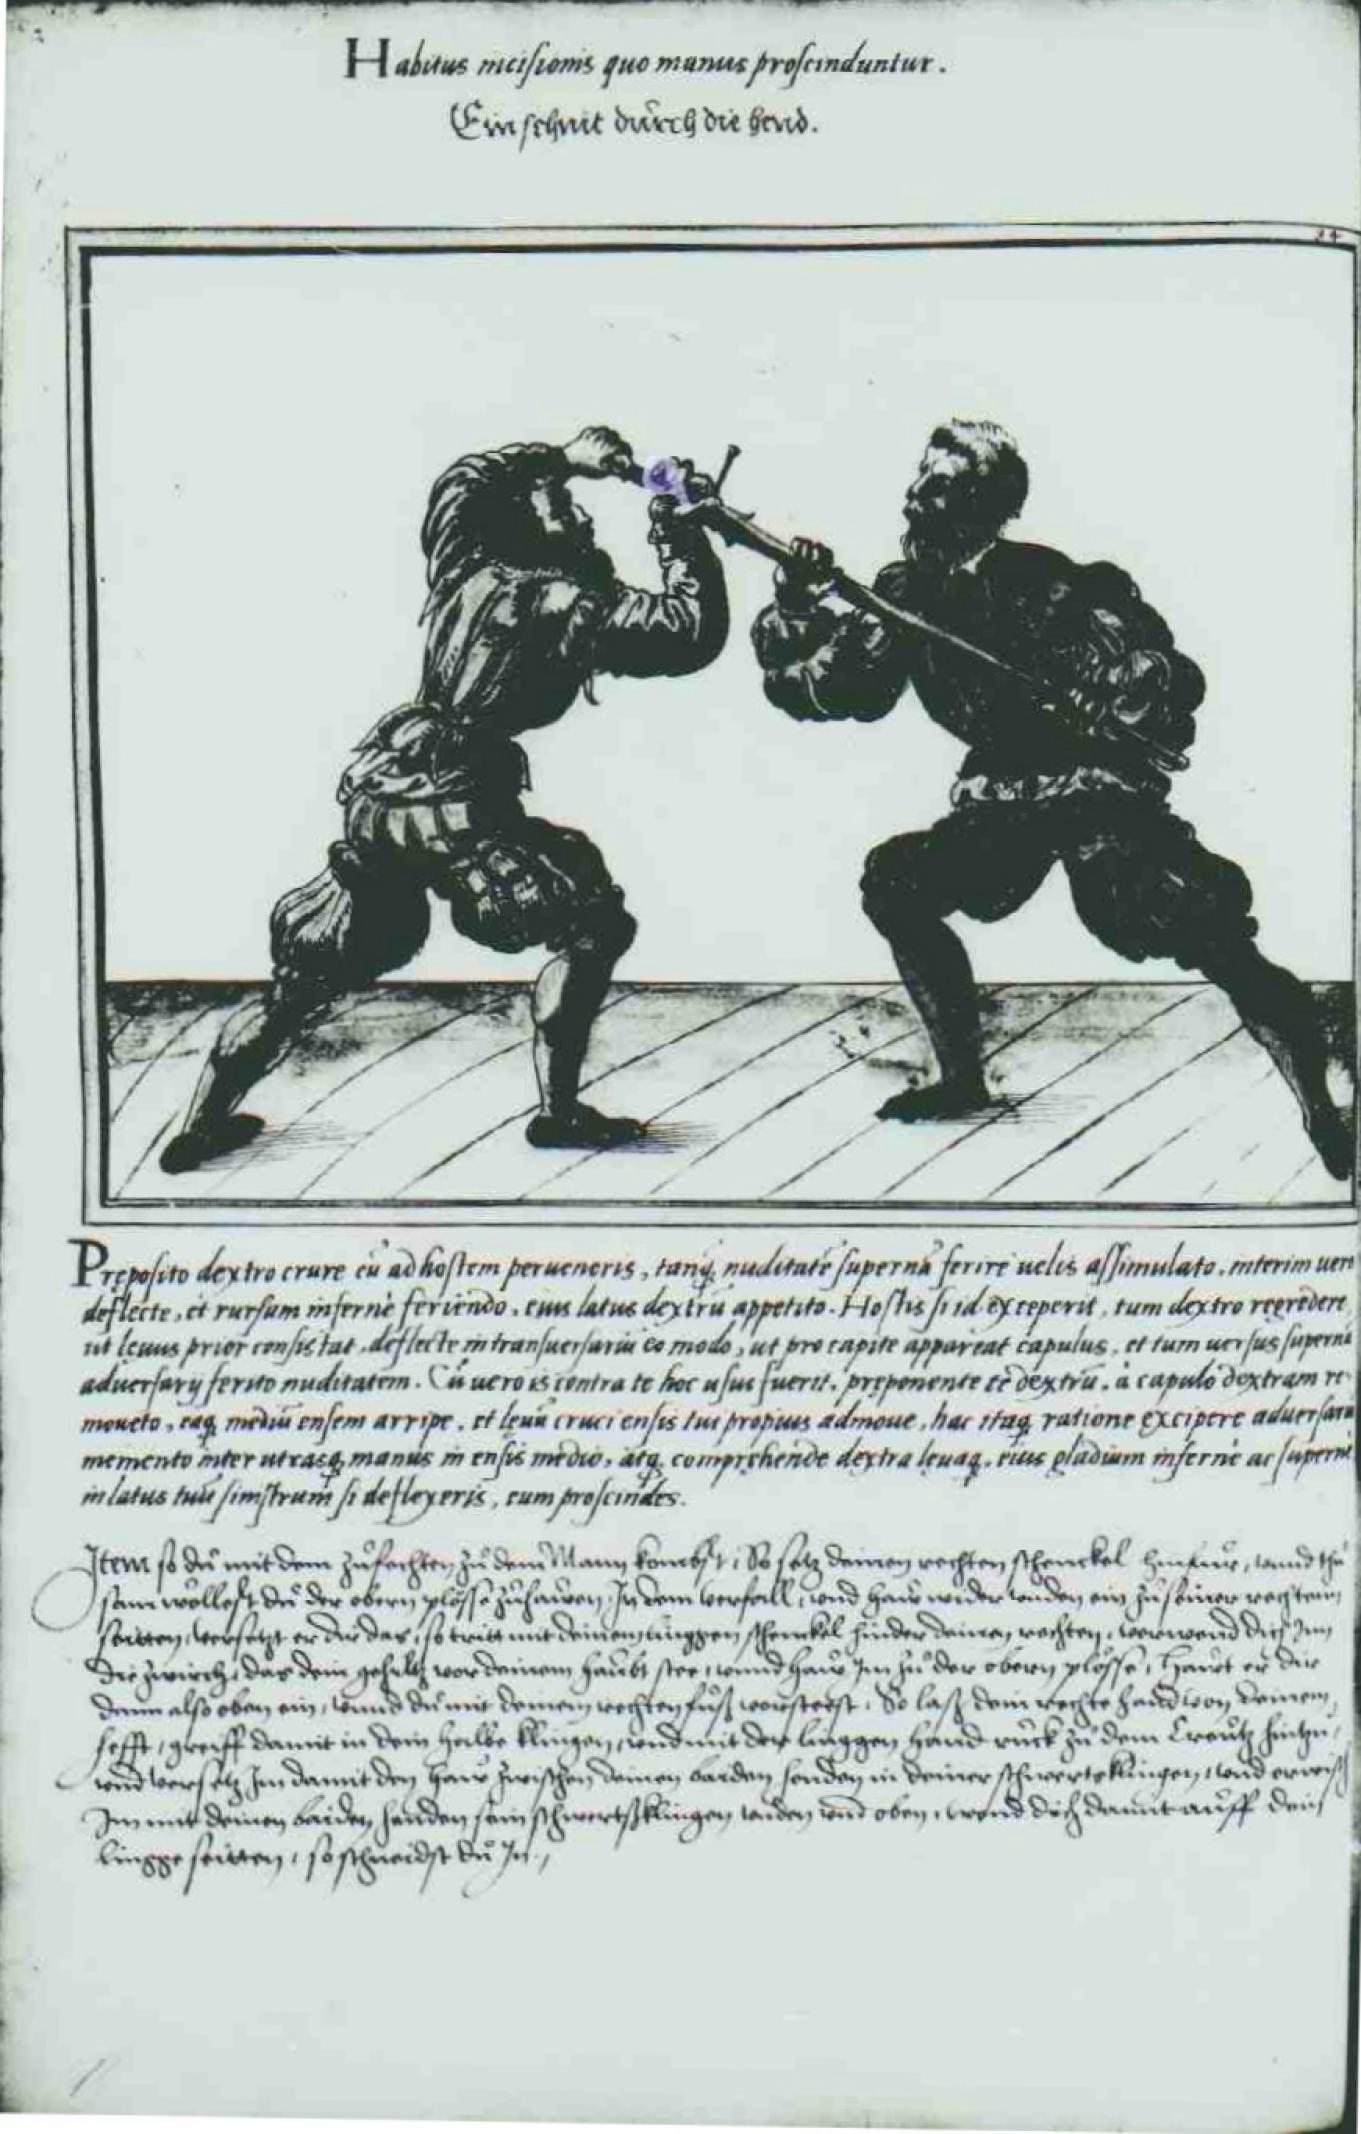 Habitus incisionis quo manus proscinduntur.
Ein schnit durch die hend.
34
Pręposito dextro crure cũ ad hostem perueneris, tanq̃ nuditatẽ supernã ferire uelis assimulato, interim uero
deflecte, et rursum infernè feriendo, eius latus dextrũ appetito. Hostis si id exceperit, tum dextro regredere,
ut leuus prior consistat, deflecte in transuersariũ eo modo, ut pro capite appareat capulus, et tum uersus supernã
aduersarij ferito nuditatem. Cũ uero is contra te hoc usus fuerit, pręponente tẽ dextrũ, à capulo dextram re-
moueto, eaq, mediũ ensem arripe, et leuã cruci ensis tui propius admoue, hac itaq, ratione excipere aduersariũ
memento inter utrasq, manus in ensis medio, atq, comprehende dextra leuaq, eius gladium infernè ac supernè
in latus tuũ sinistrum si deflexeris, eum proscindes.
Item so du mit dem zufechten zu dem Mann kombst, So setz deinen rechten schenckel hinfur, unnd thu
sam wöllest du der obern plösse zuhawen, In dem verfall, und haw wider unden ein zu seiner rechten
seitten, versetzt er dir das, so tritt mit deinem linggen schenckel hinder deinen rechten, verwend dich Im
die zwirch, das dein gehiltz vor deinem haubt stee, unnd haw Im zu der obern plösse, Hawt er dir
dann also oben ein, unnd du mit deinem rechten fuß vorsteest, So laß dein rechte hand von deinem
hefft, greiff damit in dein halbe klingen, und mit der linggen hand ruck zu dem Creutz hinzu,
und versetz Im damit den haw zwischen deinen baiden henden in deiner schwertsklingen, und erwisch
Im mit deinen baiden henden sein schwertsklingen unden und oben, wend dich damit auff dein
lingge seitten, so schneidst du In.